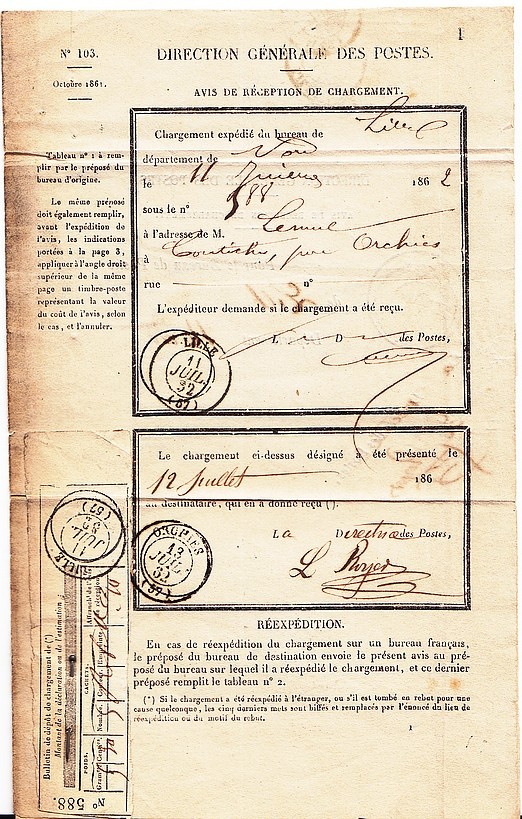 1
N° 103.
Octobre 1861.
DIRECTION GÉNÉRALE DES POSTES.
AVIS DE RÉCEPTION DE CHARGEMENT.
Tableau n° 1 à rem-
plir par le préposé du
bureau d'origine.
Le même préposé
doit également remplir,
avant l'expédition de
l'avis, les indications
portées à la page 3,
appliquer à l'angle droit
supérieur de la même
page un timbre-poste
représentant la valeur
du coût de l'avis, selon
le cas, et l'annuler.
Chargement expédié du bureau de Lille
département de Nord
le 11 186 2
sous le n° 588
à l'adresse de M.
à par Orchies
rue n°
L'expéditeur demande si le chargement a été reçu.
L D des Postes,
LILLE
11
JUIL.
(57)
Le chargement ci-dessus désigné a été présenté le
12 juillet 186
au destinataire, qui en a donné reçu (*).
La Directrice des Postes,
ORCHIES
JUIL.
LILLE
11
JUIL.
(57)
Bulletin de dépôt de chargement de (*)
Montant de la déclaration ou de l'estimation :
POIDS.
CACHETS.
Nombre.
N° 588.
RÉEXPÉDITION.
En cas de réexpédition du chargement sur un bureau français,
le préposé du bureau de destination envoie le présent avis au pré-
posé du bureau sur lequel il a réexpédié le chargement, et ce dernier
préposé remplit le tableau n° 2.
(*) Si le chargement a été réexpédié à l'étranger, ou s'il est tombé en rebut pour une
cause quelconque, les cinq derniers mots sont biffés et remplacés par l'énoncé du lieu de
réexpédition ou du motif du rebut.
1